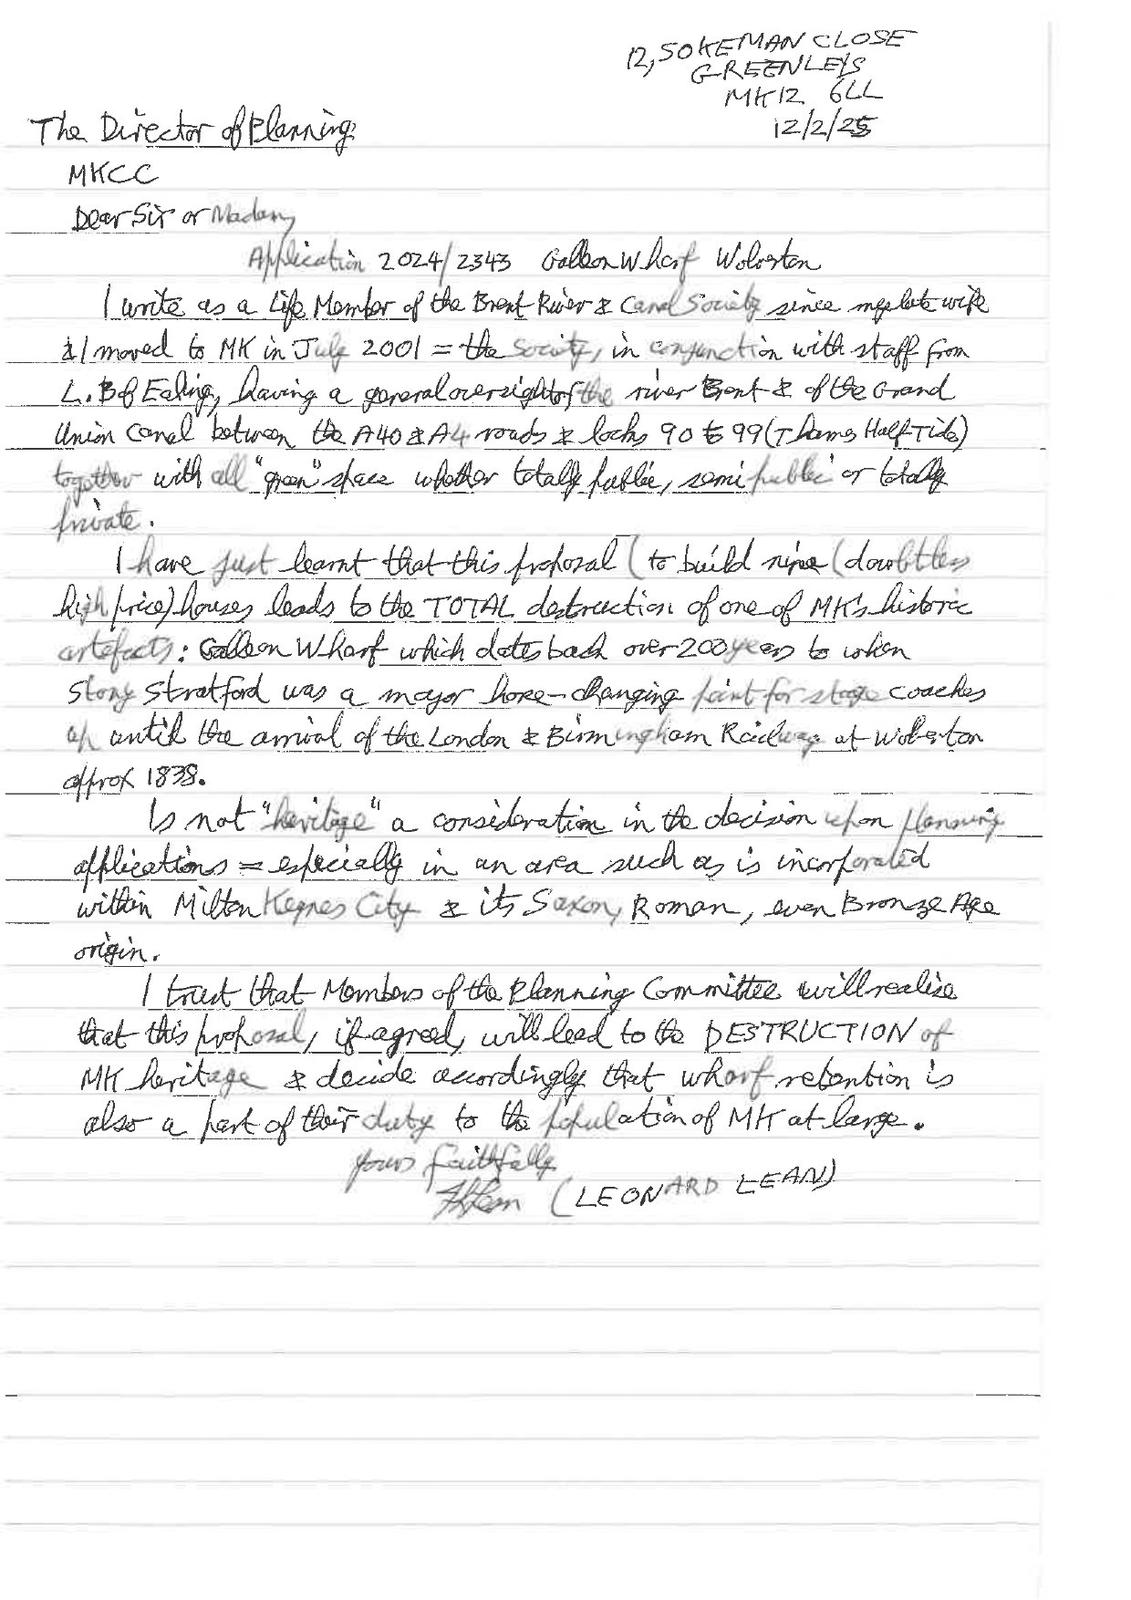 12, SOKEMAN CLOSE
GREENLEYS
MK12 6LL
12/2/25
The Director of Planning
MKCC
Dear Sir or Madam,
Application 2024/2343 Galleon Wharf Wolverton
I write as a Life Member of the Brent River & Canal Society since my late wife
& I moved to MK in July 2001 = the Society, in conjunction with staff from
L.B of Ealing, having a general oversight of the river Brent & of the Grand
Union Canal between the A40 & A4 roads & locks 90 to 99 (Thames Half Tide)
together with all "green" space whether totally public, semi public or totally
private.
I have just learnt that this proposal (to build nine (doubtless
high price) houses leads to the TOTAL destruction of one of MK's historic
artefacts: Galleon Wharf which dates back over 200 years to when
Stony Stratford was a major horse-changing point for stage coaches
up until the arrival of the London & Birmingham Railway at Wolverton
approx 1838.
Is not "heritage" a consideration in the decision upon planning
applications = especially in an area such as is incorporated
within Milton Keynes City & its Saxon, Roman, even Bronze Age
origin.
I trust that Members of the Planning Committee will realise
that this proposal, if agreed, will lead to the DESTRUCTION of
MK heritage & decide accordingly that wharf retention is
also a part of their duty to the population of MK at large.
Yours faithfully
(LEONARD LEAN)